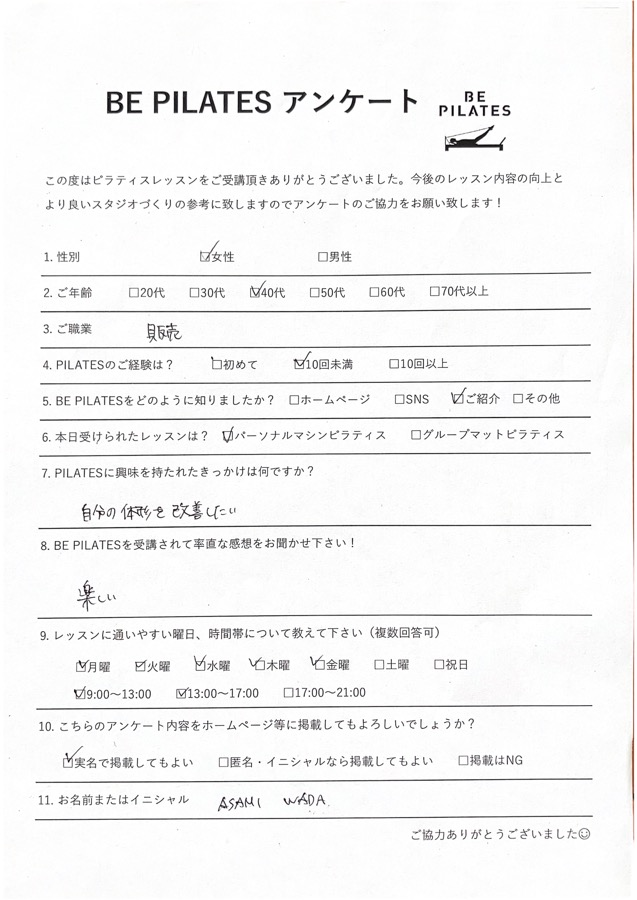 BE PILATES アンケート
BE
PILATES
この度はピラティスレッスンをご受講頂きありがとうございました。今後のレッスン内容の向上と
より良いスタジオづくりの参考に致しますのでアンケートのご協力をお願い致します！
1. 性別 ☑女性 □男性
2. ご年齢 □20代 □30代 ☑40代 □50代 □60代 □70代以上
3. ご職業 販売
4. PILATESのご経験は？ □初めて ☑10回未満 □10回以上
5. BE PILATESをどのように知りましたか？ □ホームページ □SNS ☑ご紹介 □その他
6. 本日受けられたレッスンは？ ☑パーソナルマシンピラティス □グループマットピラティス
7. PILATESに興味を持たれたきっかけは何ですか？
自分の体形を改善したい
8. BE PILATESを受講されて率直な感想をお聞かせ下さい！
楽しい
9. レッスンに通いやすい曜日、時間帯について教えて下さい（複数回答可）
☑月曜 ☑火曜 ☑水曜 ☑木曜 ☑金曜 □土曜 □祝日
☑9:00〜13:00 ☑13:00〜17:00 □17:00〜21:00
10. こちらのアンケート内容をホームページ等に掲載してもよろしいでしょうか？
☑実名で掲載してもよい □匿名・イニシャルなら掲載してもよい □掲載はNG
11. お名前またはイニシャル ASAMI WADA.
ご協力ありがとうございました☺